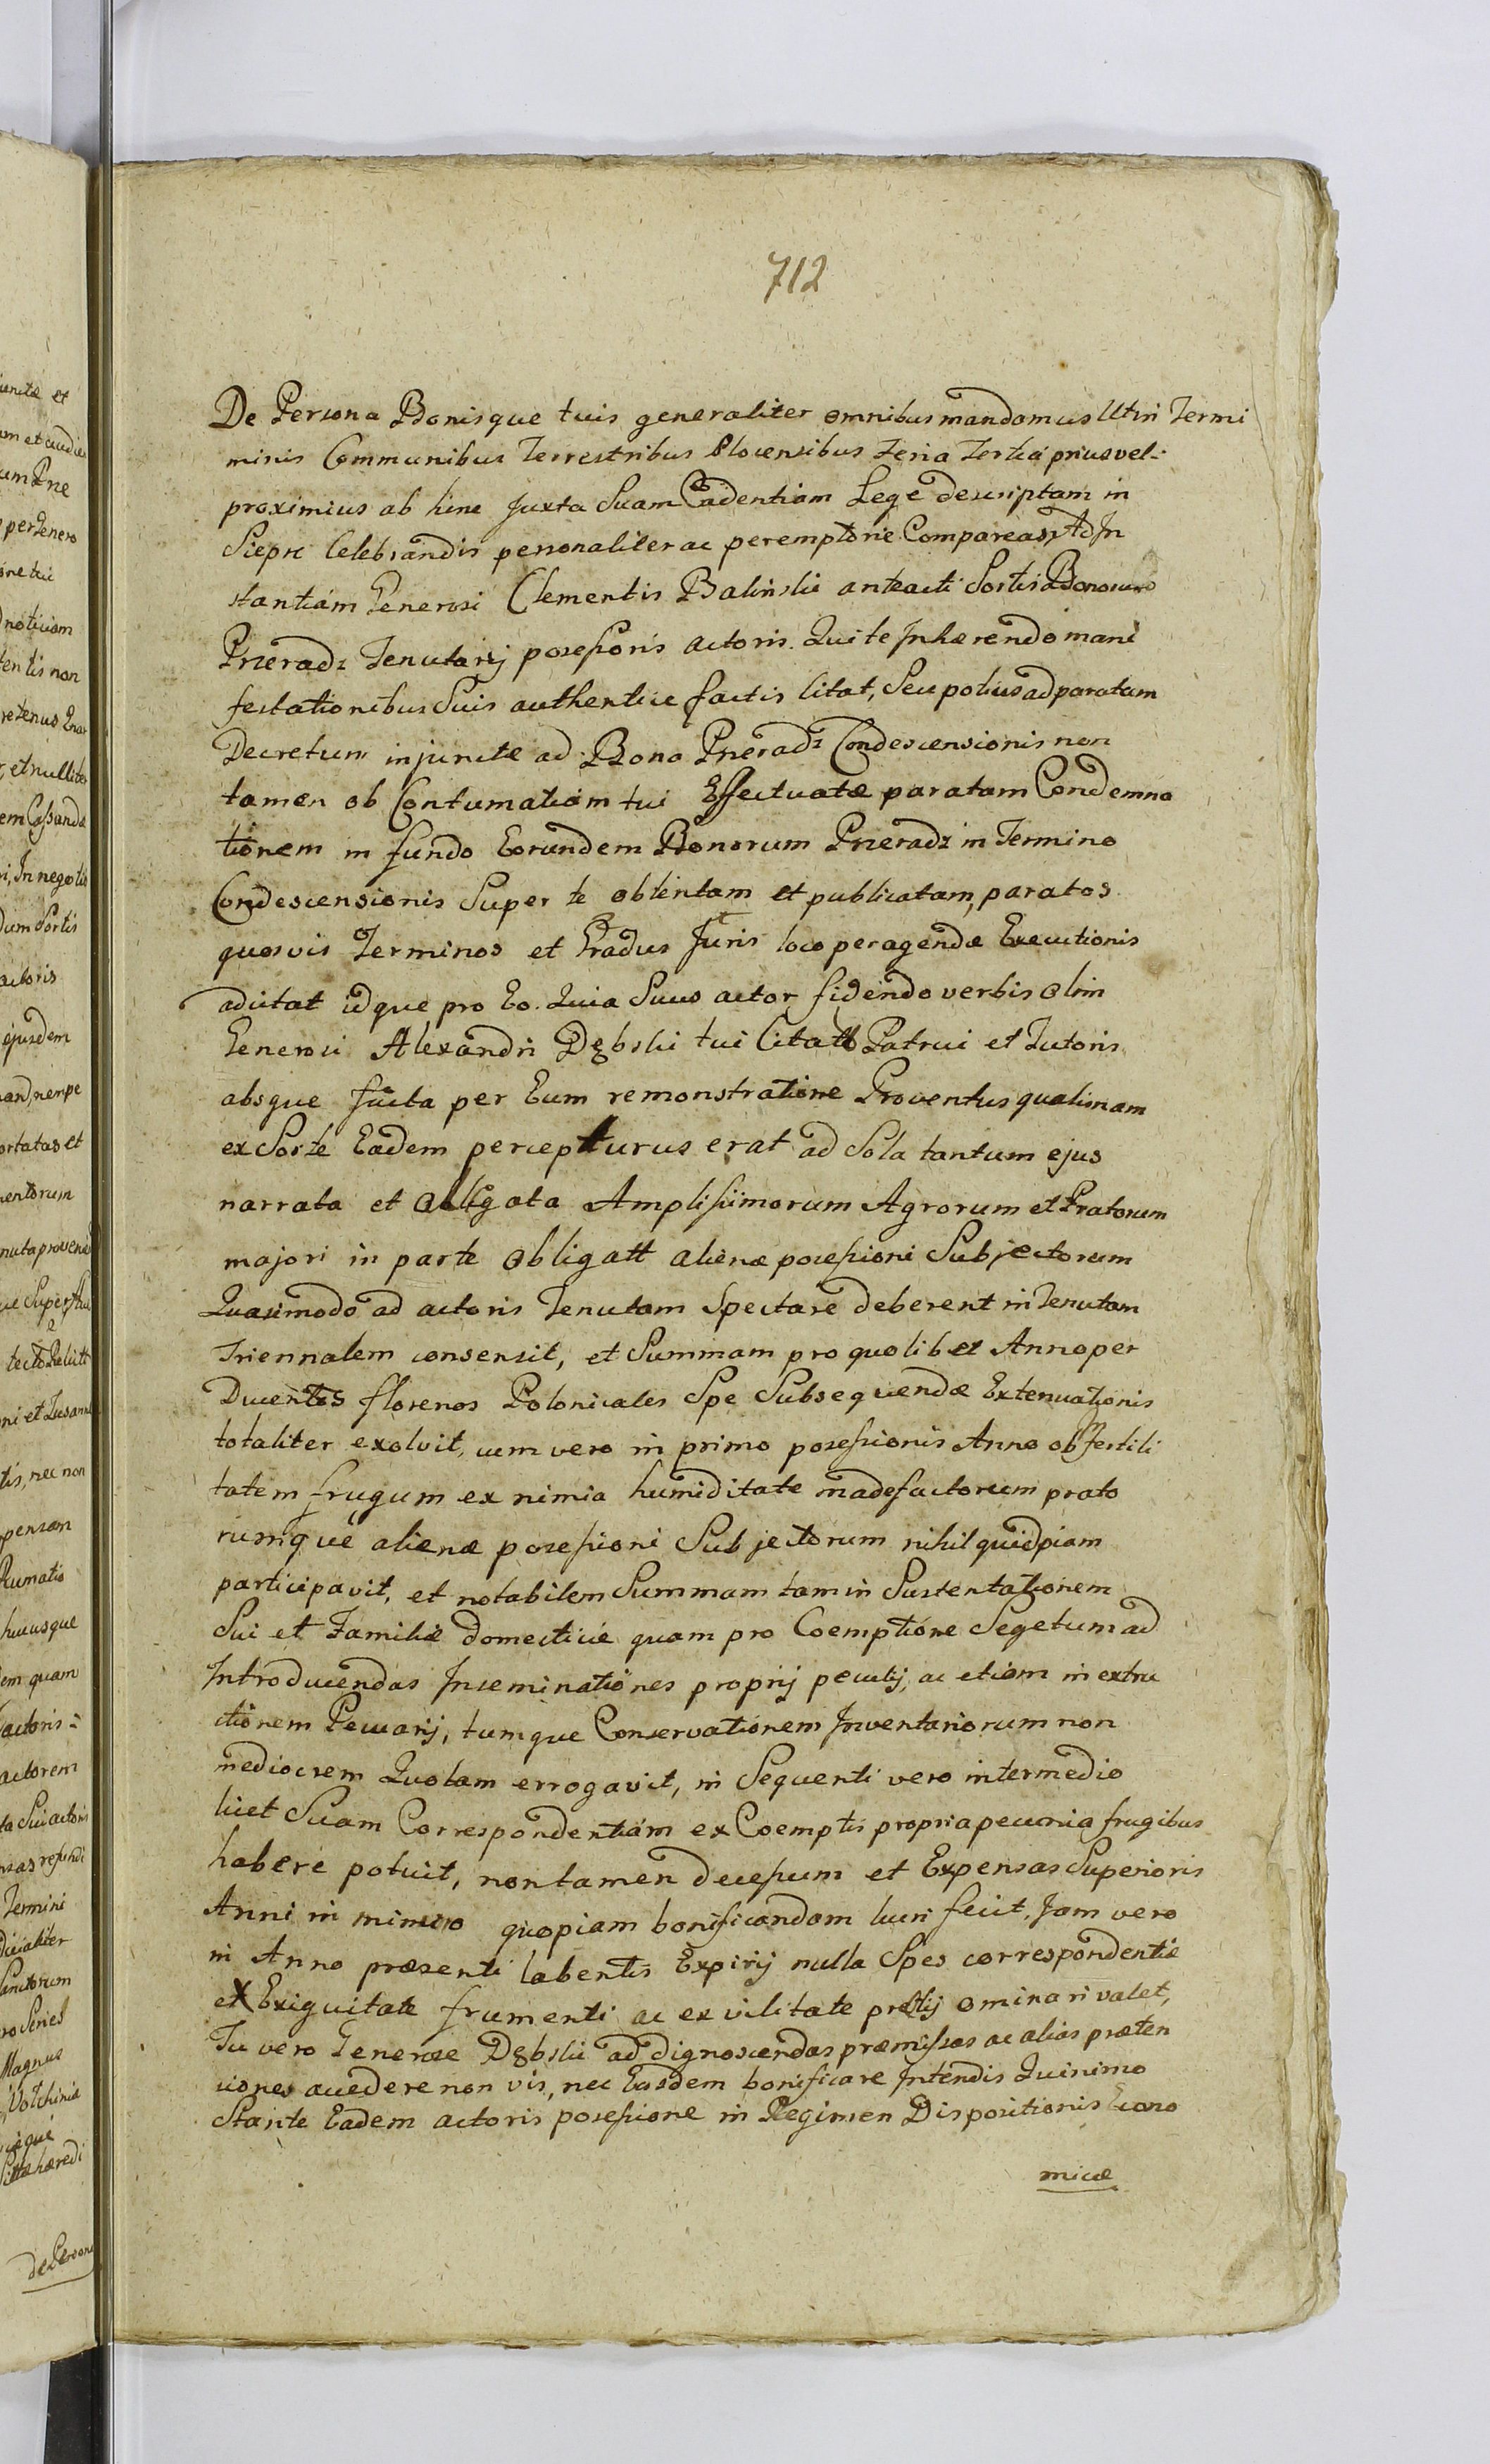 712
De Persona Bonisque tuis generaliter omnibus mandamus Utin Termi
minis Communibus Terrestribus Plocensibus Feria Tertia prius vel
proximius ab hinc Juxta Suam Cadentiam Lege descriptam in
Siepre Celebrandis personaliter ac peremptorie Compareas, Ad In
stantiam Generosi Clementis Balinski anteacti Sortis Bonorum
Pneradz Tenutarij posessoris actoris. Qui te Inhaerendo mani
festationibus Suis authentice factis Citat, Seu potius ad paratam
Decretum injuncte ad Bona Pneradz Condescensionis non
tamen ob Contumatiam tui Effectuatae paratam Condemna
tionem in fundo Eorundem Bonorum Pneradz in Termino
Condescensionis Super te obtentam et publicatam, paratos
quosvis Terminos et Gradus Juris loco peragendae Executionis
adcitat idque pro Eo. Quia Suus actor fidendo verbis olim
Generosi Alexandri Dębski tui Citatt Patrui et Tutoris
absque facta per Eum remonstratione Proventus qualinam
ex Sorte Eadem percepturus erat ad Sola tantum ejus
narrata et allegata Amplissimorum Agrorum et Pratorum
majori in parte obligatt alienae posessioni Subjectorum
Quasimodo ad actoris Tenutam Spectare deberent in Tenutam
Triennalem consensit, et Summam pro quolibet Anno per
Ducentos florenos Polonicales Spe Subsequendae Extenuationis
totaliter exolvit, cum vero in primo posessionis Anno ob Infertili
tatem frugum ex nimia humiditate madefactorum prato
rumque alienae posessioni Subjectorum nihil quidpiam
participavit, et notabilem Summam tam in Sustentationem
Sui et Familiae domesticae quam pro Coemptione Segetum ad
Introducendas Inseminationes proprij peculij, ac etiam in extru
ctionem Pecuarij, tumque Conservationem Inventariorum non
mediocrem Quotam errogavit, in Sequenti vero intermedio
licet Suam Correspondentiam ex Coemptis propria pecunia frugibus
habere potuit, non tamen decessum et Expensas Superioris
Anni in minimo quopiam bonificandam lucri fecit, Jam vero
in Anno praesenti labentis Expirij nulla Spes correspondentiae
ex Exiguitate frumenti ac ex vilitate pretij ominari valet,
Tu vero Generose Dębski ad dignoscendas praemissas ac alias praeten
ciones accedere non vis, nec Easdem bonificare Intendis Quinimo
Stante Eadem actoris posessione in Regimen Dispositionis Econo
micae